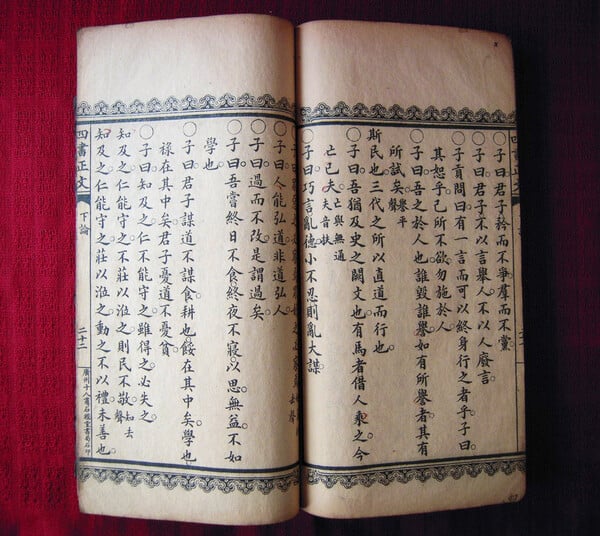 ○子曰君子矜而不爭羣而不黨。
○子曰君子不以言舉人不以人廢言。
○子貢問曰有一言而可以終身行之者乎子曰
其恕乎己所不欲勿施於人
○子曰吾之於人也誰毀誰譽如有所譽者其有
所試矣。譽平聲
斯民也三代之所以直道而行也。
○子曰吾猶及史之闕文也有馬者借人乘之今
亡已夫。亡與無通夫音扶
○子曰巧言亂德小不忍則亂大謀。
○子曰人能弘道非道弘人。
○子曰過而不改是謂過矣。
○子曰吾嘗終日不食終夜不寢以思無益不如
學也。
○子曰君子謀道不謀食耕也餒在其中矣學也
祿在其中矣君子憂道不憂貧。
○子曰知及之仁不能守之雖得之必失之。
知及之仁能守之不莊以涖之則民不敬。知去聲
知及之仁能守之莊以涖之動之不以禮未善也。
四書正文 下論 二十二 廣州十八甫石經堂書局石印